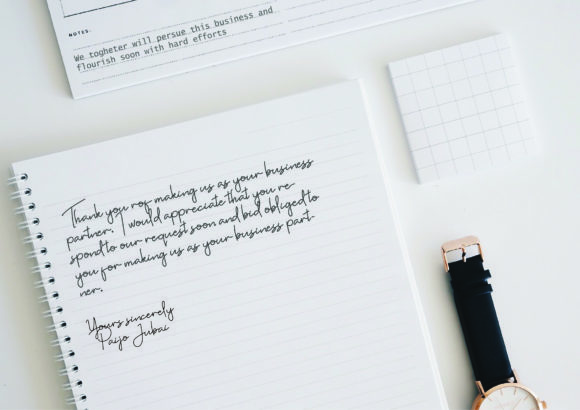 NOTES:
We togheter will persue this business and
flourish soon with hard efforts
Thank you rof making us as your business
partner. I would appreciate that you re-
spond to our request soon and bid obliged to
you for making us as your business part-
ner.
Yours sincerely
Paijo Jubai